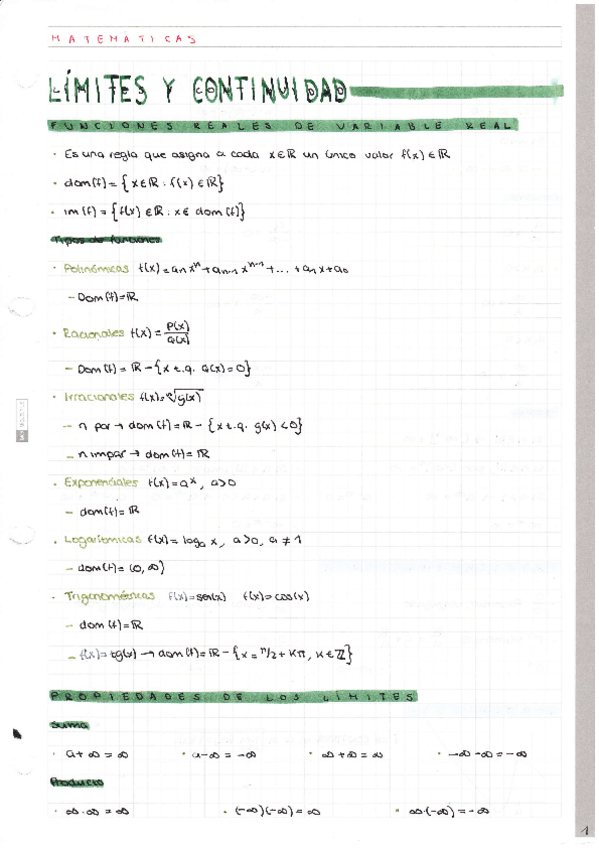 MATEMÁTICAS
LÍMITES Y CONTINUIDAD
FUNCIONES REALES DE VARIABLE REAL
· Es una regla que asigna a cada x∈ℝ un único valor f(x)∈ℝ
· dom(f)={x∈ℝ : f(x)∈ℝ}
· im(f)={f(x)∈ℝ : x∈ dom(f)}
Tipos de funciones
· Polinómicas f(x)=aₙxⁿ+aₙ₋₁xⁿ⁻¹+...+a₁x+a₀
– Dom(f)=ℝ
· Racionales f(x)=P(x)/Q(x)
– Dom(f)=ℝ–{x t.q. Q(x)=0}
· Irracionales f(x)=ⁿ√g(x)
– n par → dom(f)=ℝ–{x t.q. g(x)<0}
– n impar → dom(f)=ℝ
· Exponenciales f(x)=aˣ, a>0
– dom(f)=ℝ
· Logarítmicas f(x)=logₐ x, a>0, a≠1
– dom(f)=(0,∞)
· Trigonométricas f(x)=sen(x) f(x)=cos(x)
– dom(f)=ℝ
– f(x)=tg(x) → dom(f)=ℝ–{x=π/2+kπ, k∈ℤ}
PROPIEDADES DE LOS LÍMITES
Suma
· a+∞=∞ · a-∞=-∞ · ∞+∞=∞ · -∞-∞=-∞
Producto
· ∞·∞=∞ · (-∞)(-∞)=∞ · ∞·(-∞)=-∞
1